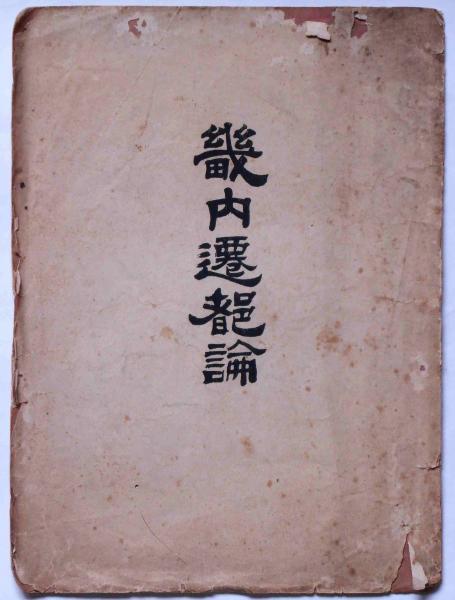 畿内遷都論